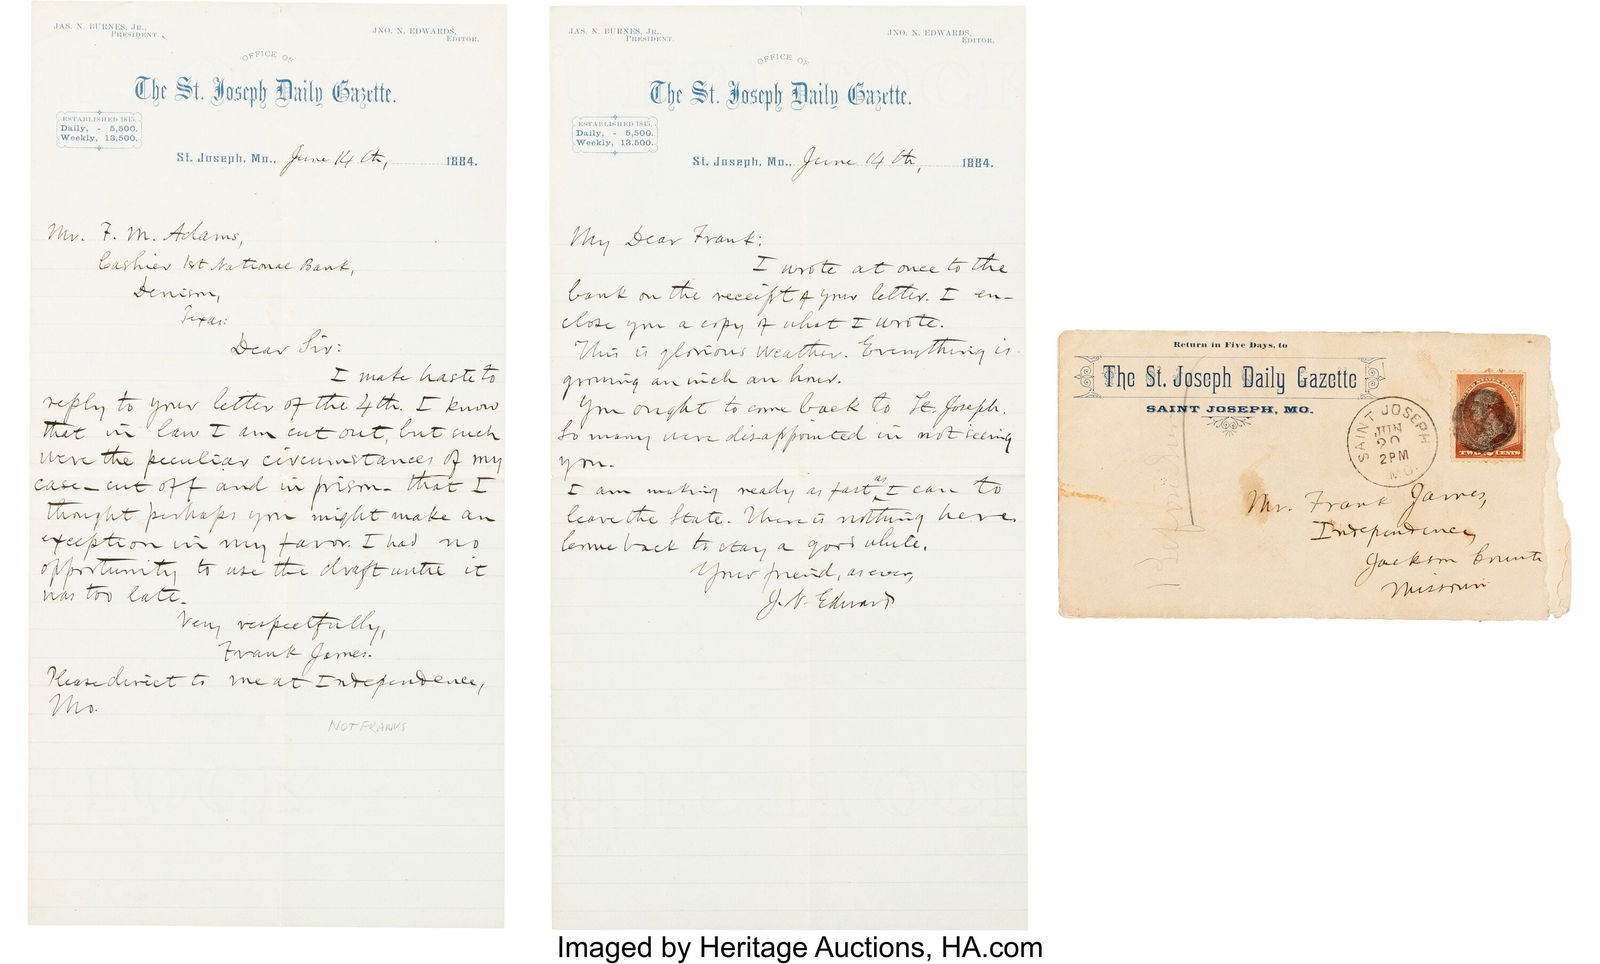 JAS. N. BURNES, JR.,
PRESIDENT.
JNO. N. EDWARDS,
EDITOR.
OFFICE OF
The St. Joseph Daily Gazette.
ESTABLISHED 1845.
Daily, - 5,500.
Weekly, 13,500.
St. Joseph, Mo., June 14th, 1884.
Mr. F. M. Adams,
Cashier 1st National Bank,
Denison,
Texas:
Dear Sir:
I make haste to
reply to your letter of the 4th. I know
that in law I am cut out, but such
were the peculiar circumstances of my
case - cut off and in prison - that I
thought perhaps you might make an
exception in my favor. I had no
opportunity to use the draft until it
was too late.
Very respectfully,
Frank James.
Please direct to me at Independence,
Mo.
NOT FRANKS
JAS. N. BURNES, JR.,
PRESIDENT.
JNO. N. EDWARDS,
EDITOR.
OFFICE OF
The St. Joseph Daily Gazette.
ESTABLISHED 1845.
Daily, - 5,500.
Weekly, 13,500.
St. Joseph, Mo., June 14th, 1884.
My Dear Frank:
I wrote at once to the
bank on the receipt of your letter. I en-
close you a copy of what I wrote.
This is glorious weather. Everything is
growing an inch an hour.
You ought to come back to St. Joseph.
So many were disappointed in not seeing
you.
I am making ready as fast as I can to
leave the State. There is nothing here.
Come back to stay a good while.
Your friend, as ever,
J. N. Edwards
Return in Five Days, to
The St. Joseph Daily Gazette
SAINT JOSEPH, MO.
SAINT JOSEPH
JUN
20
2PM
MO.
TWO CENTS
Mr. Frank James,
Independence,
Jackson County
Missouri
Imaged by Heritage Auctions, HA.com